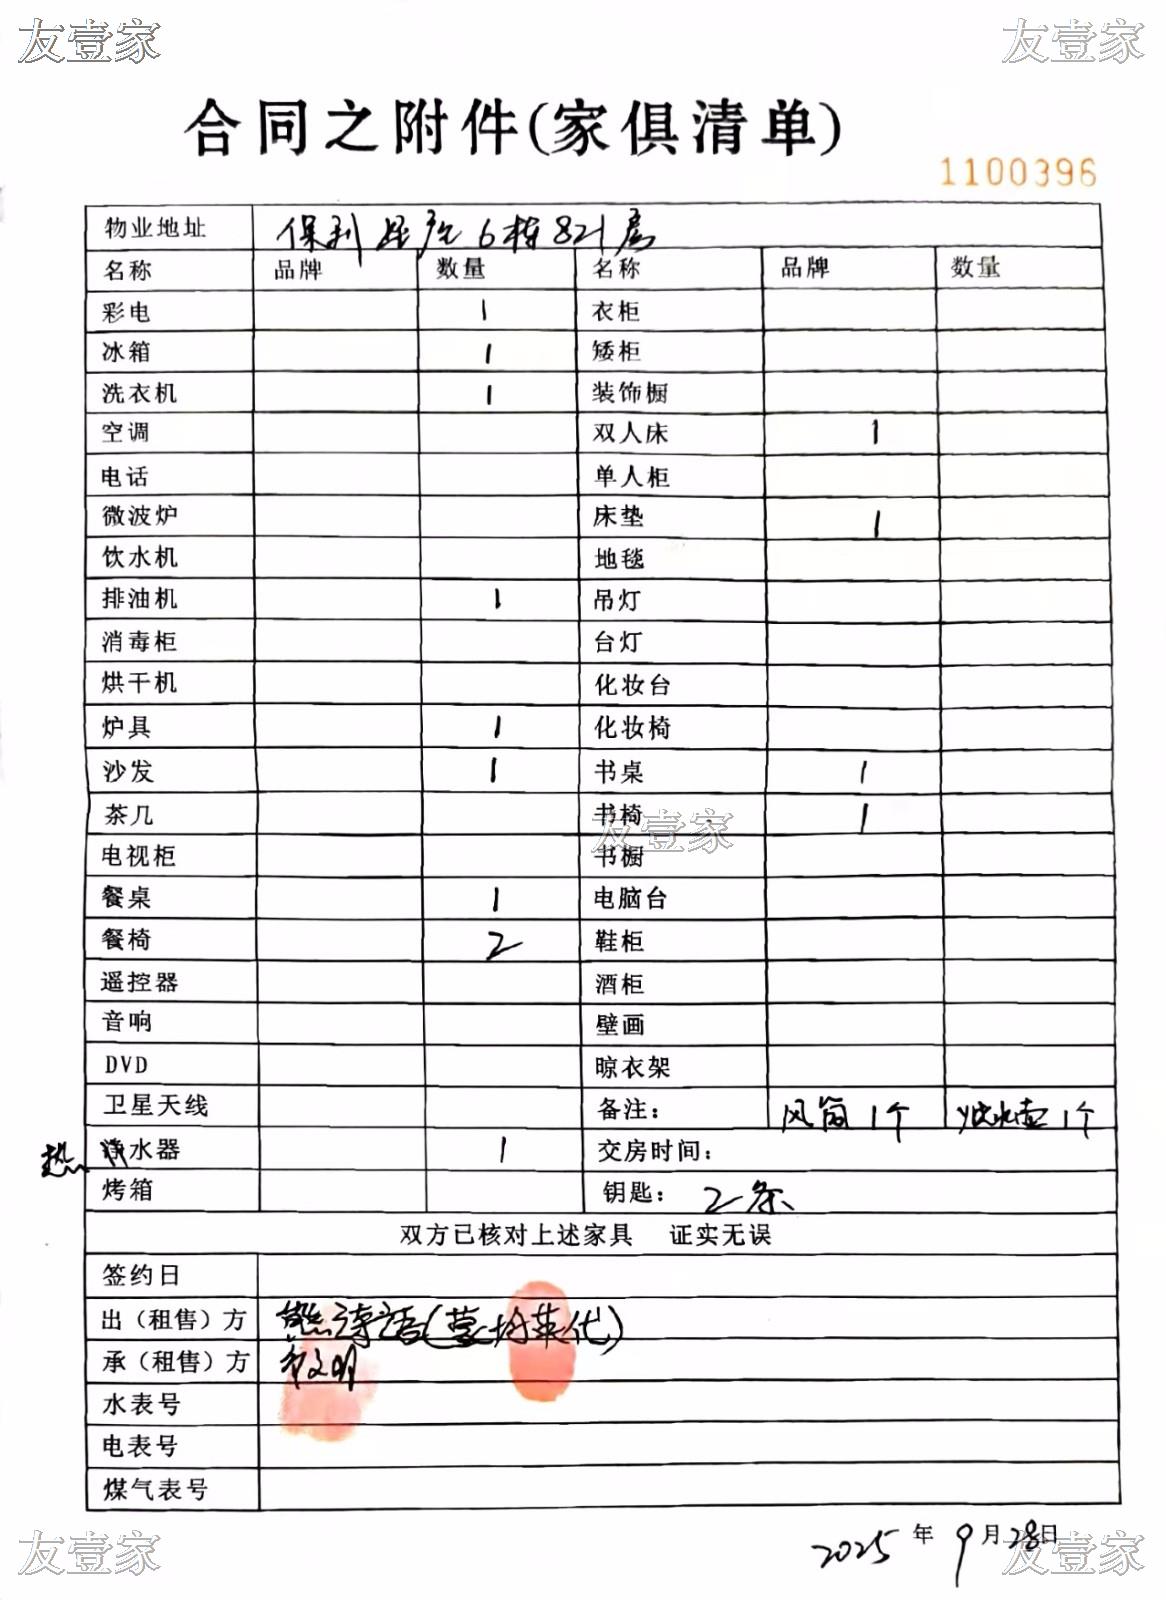 友壹家 友壹家
合同之附件(家俱清单)
1100396
物业地址 保利 6栋821房
名称 品牌 数量 名称 品牌 数量
彩电 1 衣柜
冰箱 1 矮柜
洗衣机 1 装饰橱
空调 双人床 1
电话 单人柜
微波炉 床垫 1
饮水机 地毯
排油机 1 吊灯
消毒柜 台灯
烘干机 化妆台
炉具 1 化妆椅
沙发 1 书桌 1
茶几 书椅 1
友壹家
电视柜 书橱
餐桌 1 电脑台
餐椅 2 鞋柜
遥控器 酒柜
音响 壁画
DVD 晾衣架
卫星天线 备注： 风筒1个 烧水壶1个
热 净水器 1 交房时间：
烤箱 钥匙： 2条
双方已核对上述家具 证实无误
签约日
出（租售）方 熊诗语(英代)
承（租售）方
水表号
电表号
煤气表号
2025年9月28日
友壹家 友壹家